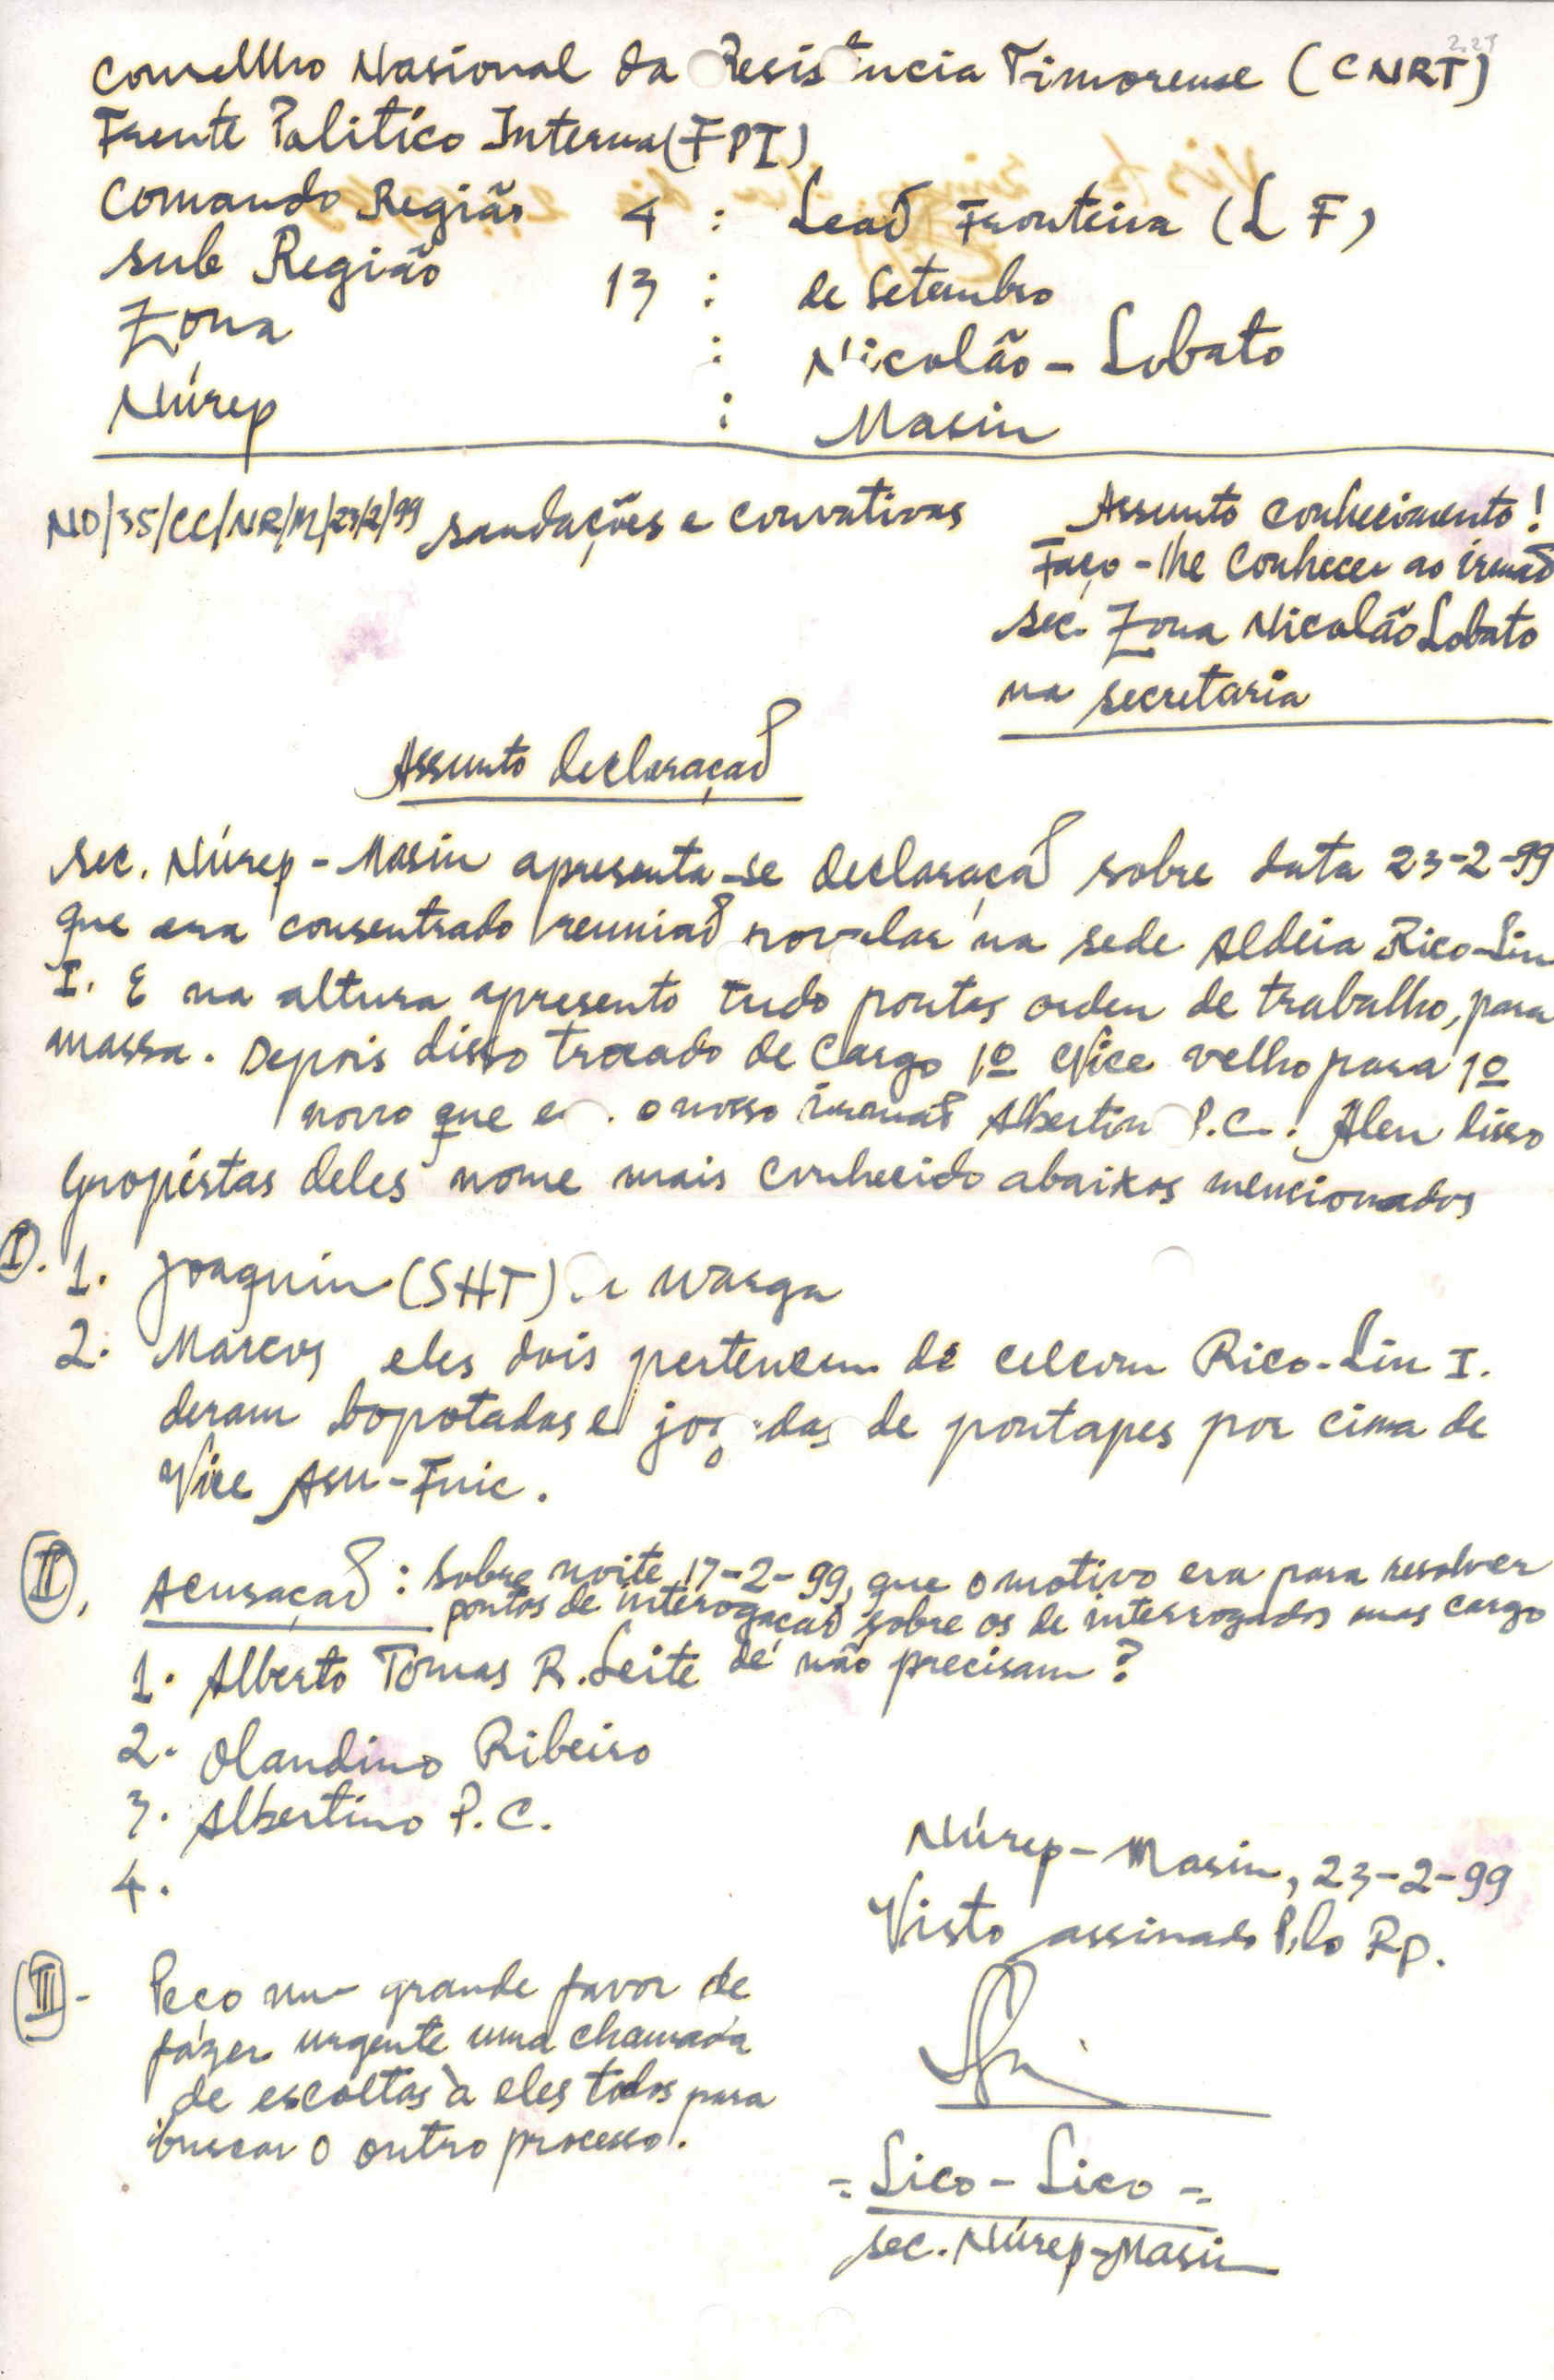 Consellho Nasional da Resistência Timorense (CNRT)
Frente Politíco Interna (FPI)
Comando Região 4 : Leaõ Fronteira (L F)
Sub Região 13 : de Setembro
Zona : Nicolão - Lobato
Núrep : Masin
NO/35/CC/NR/M/23/2/99 saudações e
Assunto Conhecimento!
Faço-lhe Conhecer ao irmaõ
Sec. Zona Nicolão Lobato
na secretaria
Assunto declaraçaõ
Sec. Núrep - Masin apresenta-se declaraçaõ sobre data 23-2-99
que era consentrado reuniaõ na sede Aldeia Rico-Lin
I. E na altura apresento tudo pontos orden de trabalho, para
massa. Depois disso trocado de Cargo 1º Vice velho para 1º
novo que o nosso Albertin P.C. Alen disso
deles nome mais conhecido abaixos mencionados
I. 1. Joaquin (SHT) warga
2. Marcos eles dois pertencem de celcom Rico-Lin I.
deram bopotadas e de pontapes por cima de
Vice Asu-Fuic.
II, Acusaçaõ : Sobre noite 17-2-99, que o motivo era para resolver
pontos de interogaçaõ sobre os de interrogados mas cargo
1. Alberto Tomas R. Leite de não precisam?
2. Olandino Ribeiro
3. Albertino P.C.
4.
Núrep - Masin, 23-2-99
Visto assinado Pelo Rp.
III - Peço um grande favor de
fázer urgente uma chamada
de escoltas à eles todos para
buscar o outro processo.
= Lico - Lico =
Sec. Núrep-Masin